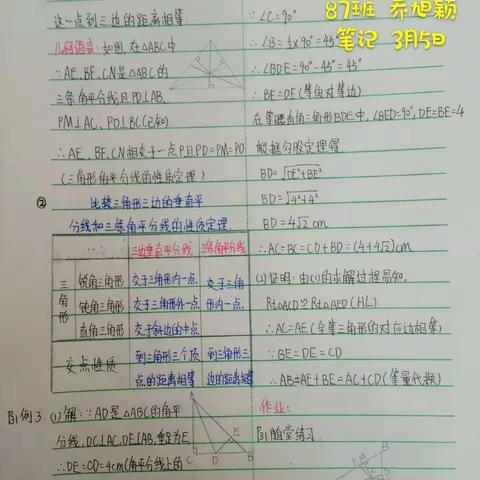 这一点到三边的距离相等.
几何语言:如图,在△ABC中
∵AE、BF、CN是△ABC的
三条角平分线且PD⊥AB.
PM⊥AC、PO⊥BC(已知)
∴AE、BF、CN相交于一点P且PD=PM=PO
(三角形角平分线的性质定理)
② 比较三角形三边的垂直平
分线和三条角平分线的性质定理.
三边垂直平分线 三条角平分线
三角形
锐角三角形 交于三角形内一点
钝角三角形 交于三角形外一点
直角三角形 交于斜边的中点
交于三角形内一点
交点性质
到三角形三个顶点的距离相等
到三角形三边的距离相等
例3. (1)解:∵AD是△ABC的角平
分线,DC⊥AC,DE⊥AB,垂足为E
∴DE=CD=4cm(角平分线上的
A
E
C D B
87班 乔旭颖
笔记 3月5日
∵∠C=90°
∴∠B=½×90°=45°
∴∠BDE=90°-45°=45°
∴BE=DE(等角对等边)
在等腰直角三角形BDE中,∠BED=90°,DE=BE=4
根据勾股定理得
BD=√DE²+BE²
BD=√4²+4²
BD=4√2cm
∴AC=BC=CD+BD=(4+4√2)cm
(2)证明:由(1)的求解过程易知,
Rt△ACD≌Rt△AED(HL)
∴AC=AE(全等三角形的对应边相等)
∵BE=DE=CD
∴AB=AE+BE=AC+CD(等量代换)
作业:
随堂练习.